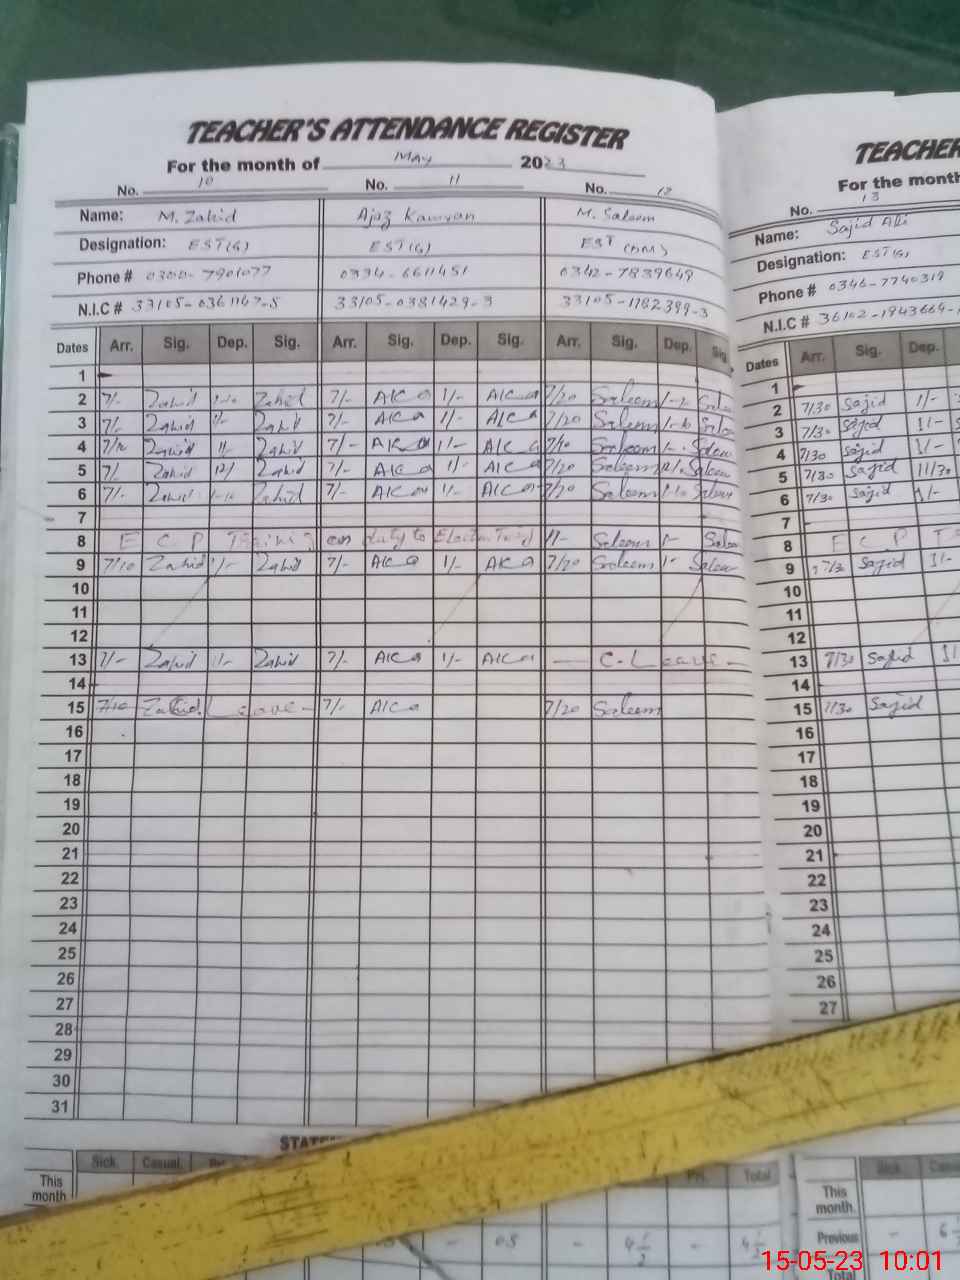 TEACHER'S ATTENDANCE REGISTER
For the month of May 2023
No. 10 No. 11 No. 12
Name: M. Zahid Ajaz Kamran M. Saleem
Designation: EST(G) EST(G) EST
Phone # 0300-7901077 0334-6611451 0342-7839649
N.I.C # 33105-0361167-5 33105-0381429-3 33105-1182399-3
Dates Arr. Sig. Dep. Sig. Arr. Sig. Dep. Sig. Arr. Sig. Dep. Sig.
1
2 7/- Zahid Zahid 7/- AKa 1/- AKa 7/20 Saleem
3 7/- Zahid 1/- Zahid 7/- AKa 1/- AKa 7/20 Saleem
4 Zahid 1/- Zahid 7/- AKa 1/- AKa Saleem
5 7/- Zahid Zahid 7/- AKa 1/- AKa 7/20 Saleem Saleem
6 7/- Zahid Zahid 7/- AKa 1/- AKa 7/20 Saleem Saleem
7
8 E C P Training on duty to Saleem
9 7/10 Zahid 1/- Zahid 7/- AKa 1/- AKa 7/20 Saleem 1- Saleem
10
11
12
13 7/- Zahid 1/- Zahid 7/- AKa 1/- AKa — C. Leave —
14
15 7/10 Zahid Leave - 7/- AKa 7/20 Saleem
16
17
18
19
20
21
22
23
24
25
26
27
28
29
30
31
Sick. Casual. Total
This month
- 08 - 4½ - 4½
TEACHER
For the month
No. 13
Name: Sajid Ali
Designation: EST(G)
Phone # 0346-7740319
N.I.C # 36102-1943664-
Dates Arr. Sig. Dep.
1
2 7/30 Sajid 1/-
3 7/30 Sajid 1/-
4 7/30 Sajid 1/-
5 7/30 Sajid 11/30
6 7/30 Sajid 1/-
7
8 E C P
9 7/30 Sajid 1/-
10
11
12
13 7/30 Sajid
14
15 7/30 Sajid
16
17
18
19
20
21
22
23
24
25
26
27
Sick.
This month.
Previous -
Total
15-05-23 10:01